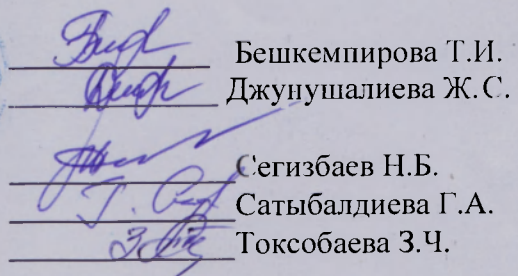 Бешкемпирова Т.И.
Джунушалиева Ж.С.
Сегизбаев Н.Б.
Сатыбалдиева Г.А.
Токсобаева З.Ч.